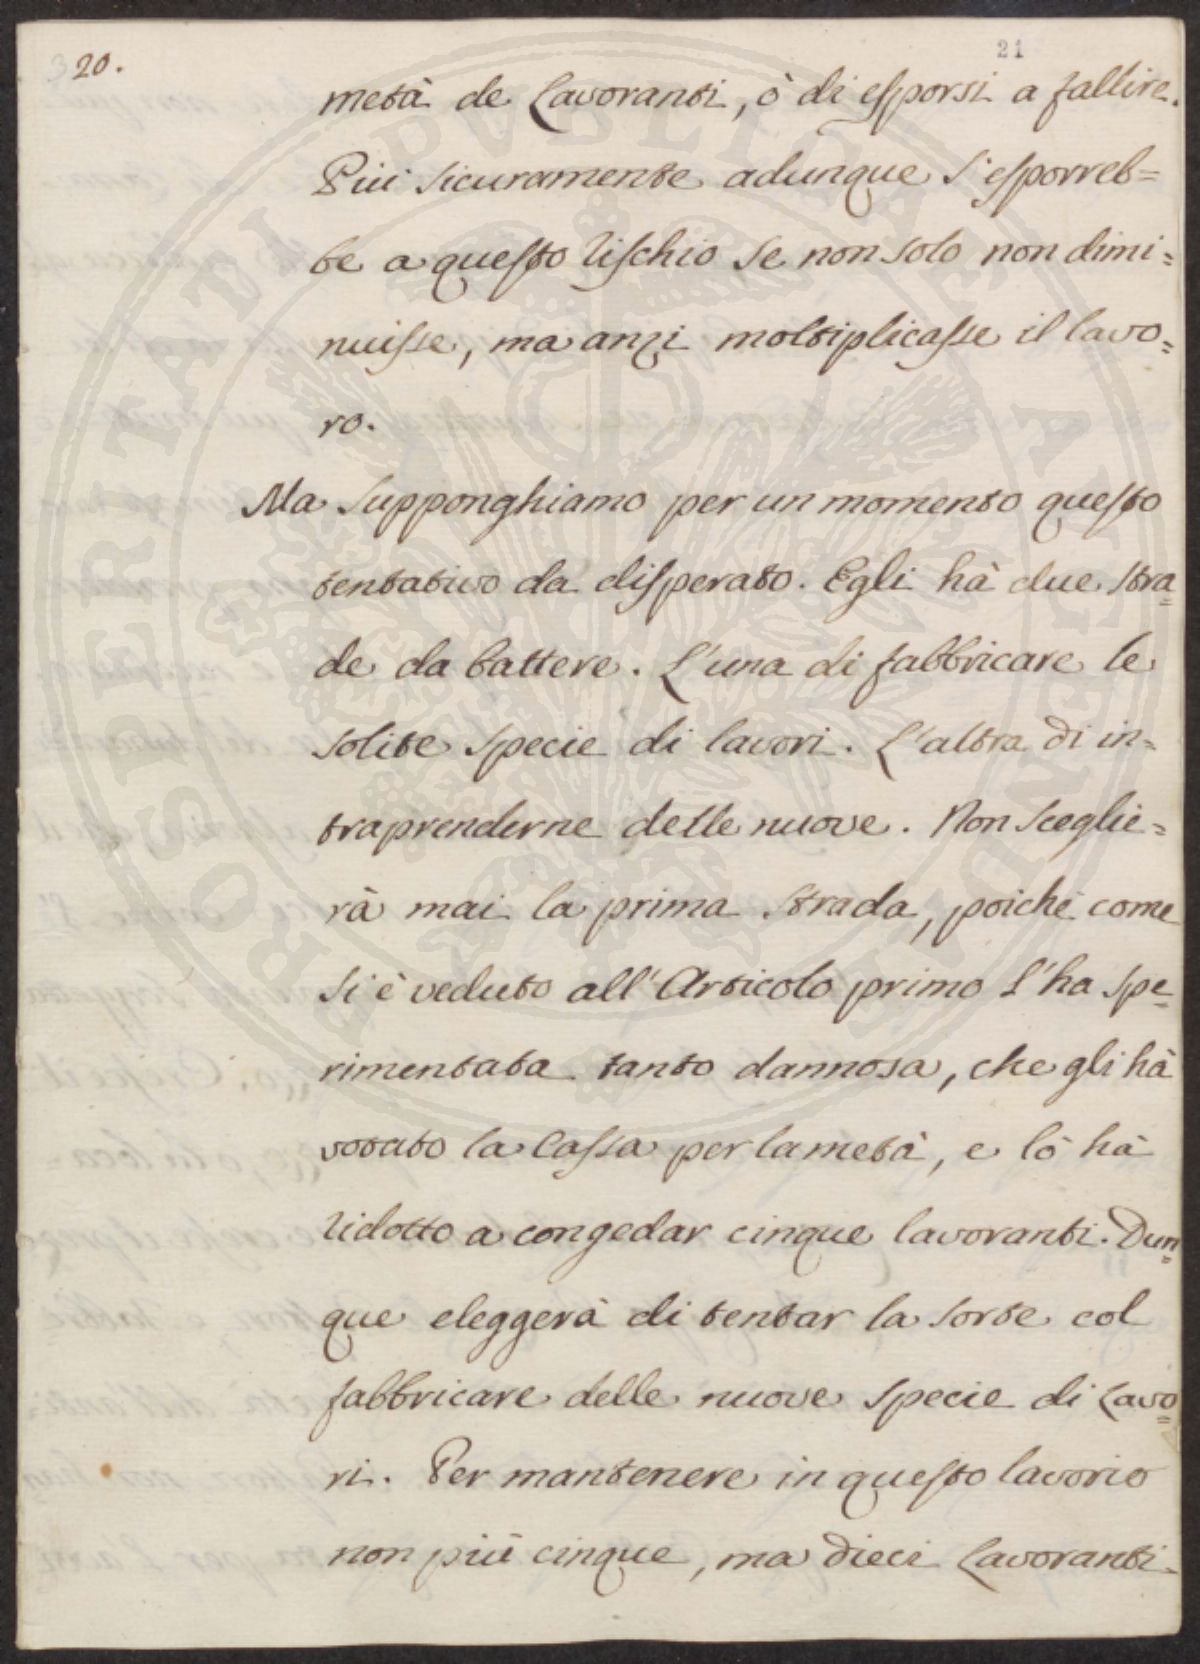 320.
21
metà de Lavoranti, ò di esporsi a fallire.
Più sicuramente adunque s'esporreb=
be a questo rischio se non solo non dimi=
nuisse, ma anzi moltiplicasse il lavo=
ro.
Ma supponghiamo per un momento questo
tentativo da disperato. Egli hà due stra=
de da battere. L'una di fabbricare le
solite specie di lavori. L'altra di in=
traprenderne delle nuove. Non sceglie=
rà mai la prima strada, poichè come
si è veduto all'Articolo primo l'ha spe=
rimentata tanto dannosa, che gli hà
votato la Cassa per la metà, e lò hà
ridotto a congedar cinque lavoranti. Dun=
que eleggerà di tentar la sorte col
fabbricare delle nuove specie di Lavo=
ri. Per mantenere in questo lavorio
non più cinque, ma dieci Lavoranti.
PROSPERITATI PUBLICAE AUGENDAE